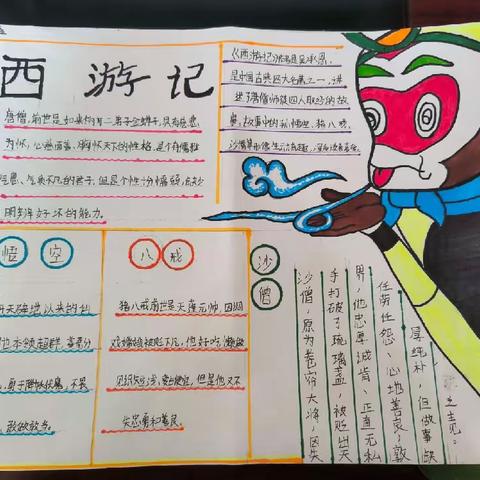 西游记
唐僧,前世是如来的第二弟子金蝉子,具有慈悲
为怀,心慈面善,胸怀天下的性格,是个有责任
气、气宇不凡的君子,但是个性十分懦弱,缺少
明辨好坏的能力。
《西游记》作者是吴承恩,
是中国古典四大名著之一,讲
述了唐僧师徒四人取经的故
事,故事中的孙悟空、猪八戒、
沙僧等形像生动有趣,深
悟空
天降地以来的
本领超群,
敢做敢当。
八戒
猪八戒前世是天蓬元帅,因调
戏嫦娥被贬下凡,他好吃懒做
见识短浅,爱占便宜,但是他又不
失忠勇和善良。
沙僧
沙僧,原为卷帘大将,因失
手打破了琉璃盏,被贬出天
界,他忠厚诚肯、正直无私
任劳任怨、心地善良,敦
厚纯朴,但做事缺
乏主见。